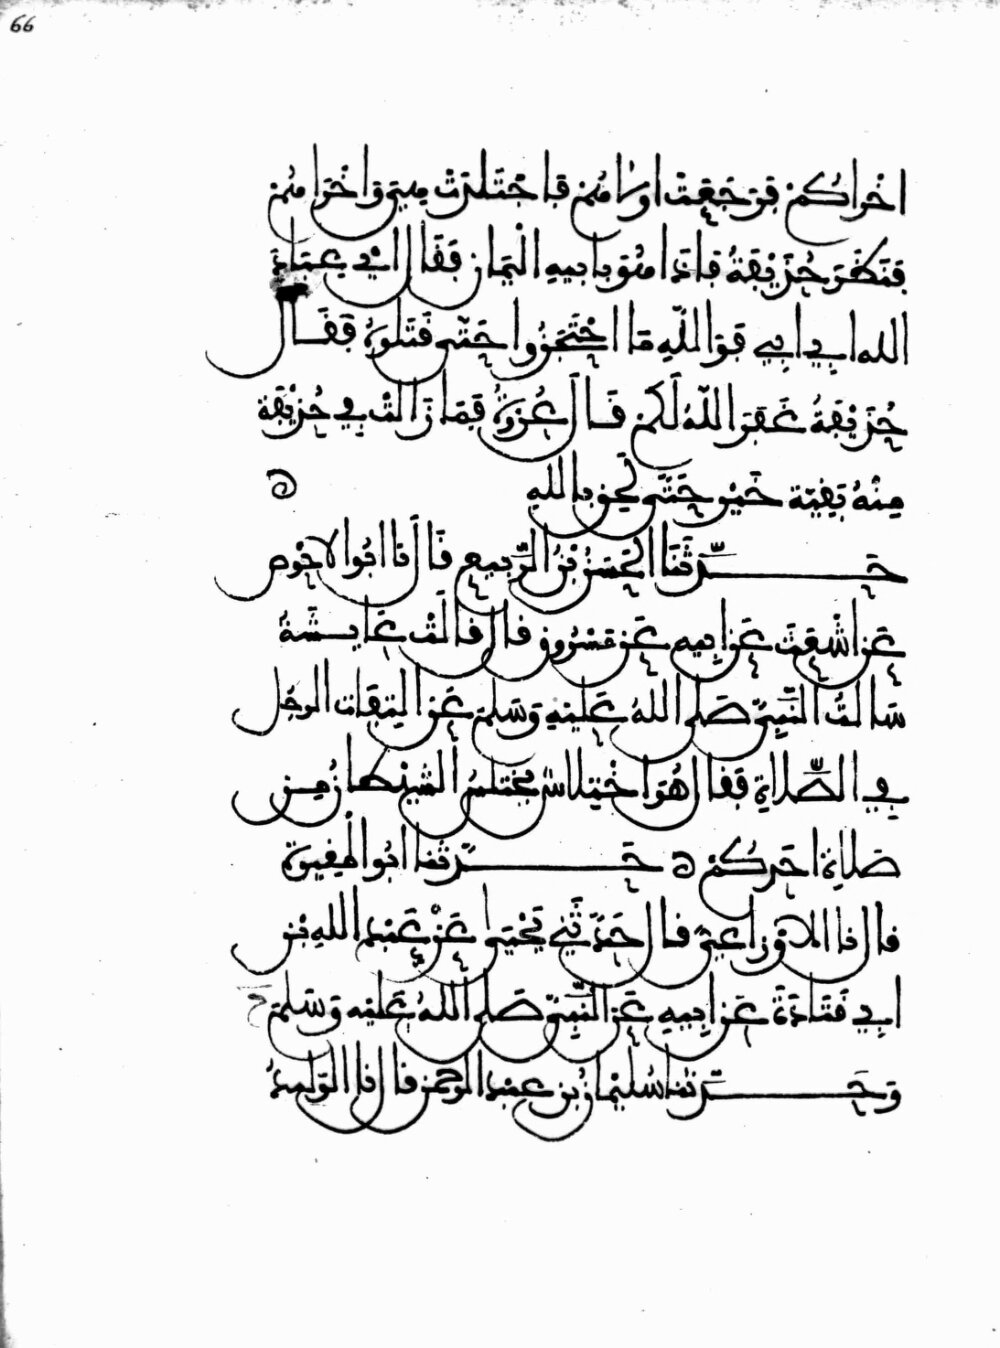 66
اخراكم فرجعت اولاهم فاجتلدت هي واخراهم
فنظر حذيفة فاذا هو بابيه اليمان فقال اي عباد
الله ابي ابي فوالله ما احتجزوا حتى قتلوه فقال
حذيفة غفر الله لكم قال عروة فما زالت في حذيفة
منه بقية خير حتى لحق بالله
حدثنا الحسن بن الربيع قال نا ابو الاحوص
عن اشعث عن ابيه عن مسروق قال قالت عايشة
سالت النبي صلى الله عليه وسلم عن التفات الرجل
في الصلاة فقال هو اختلاس يختلس الشيطان من
صلاة احدكم ه حدثنا ابو المغيرة
قال نا الاوزاعي قال حدثني يحيى عن عبد الله بن
ابي قتادة عن ابيه عن النبي صلى الله عليه وسلم
وحدثنا سليمان بن عبد الرحمن قال نا الوليد